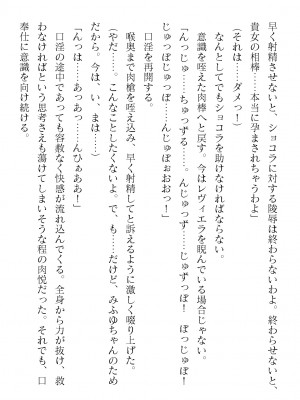 早く射精させないと、ショコラに対する陵辱は終わらないわよ。終わらせないと、
貴女の相棒……本当に孕まされちゃうわよ」
（それは……ダメッ！）
なんとしてでもショコラを助けなければならない。
意識を咥えた肉棒へと戻す。今はレヴィエラを睨んでいる場合じゃない。
「んっじゅ……ちゅっずる……。んじゅっず……じゅずっぽ！　ぼっじゅぽ！
じゅっぽじゅっぽ……んじゅぽぉおおっ！」
口淫を再開する。
喉奥まで肉槍を咥え込み、早く射精してと訴えるように激しく啜り上げた。
（やだ……。こんなことしたくないよ。で、も……だけど、みふゆちゃんのため
だから。今は、い、まは……）
「んっは……あっあっ……んひぁああ！」
口淫の途中であっても容赦なく快感が流れ込んでくる。全身から力が抜け、救
わなければという思考さえも蕩けてしまいそうな程の肉悦だった。それでも、口
奉仕に意識を向け続ける。